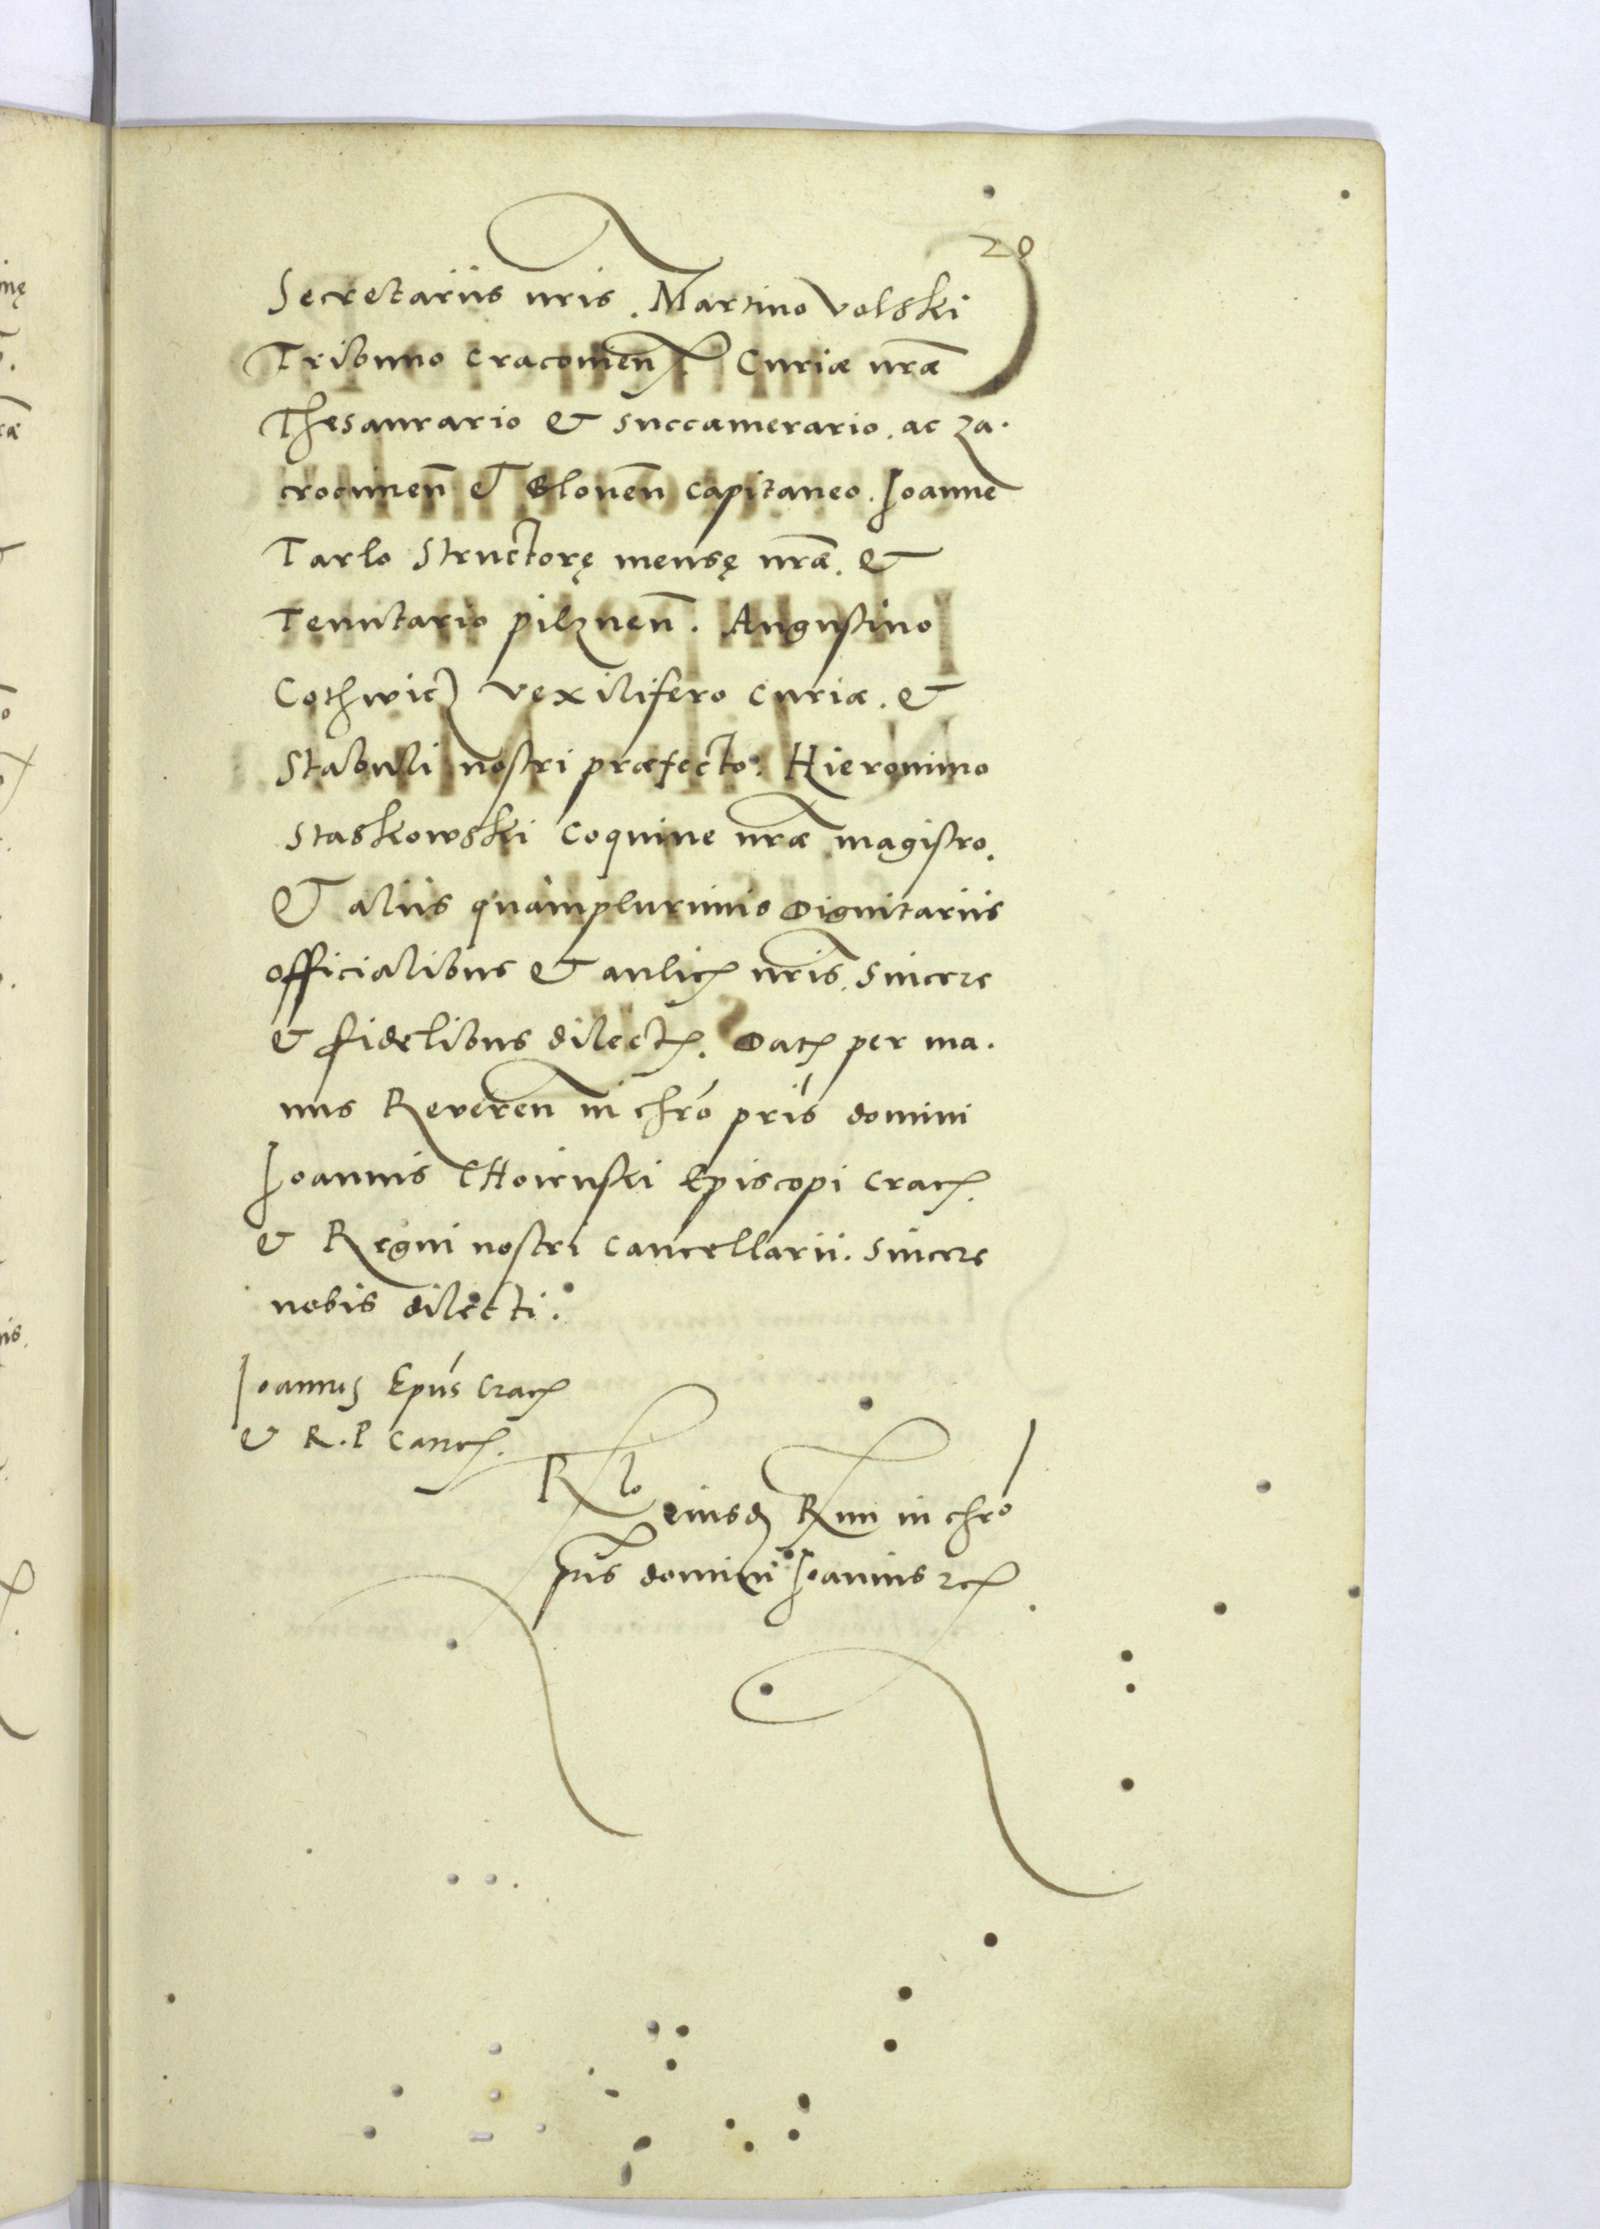 20
Secretariis nris. Martino Volski
Tribuno Cracovien. Curiæ nræ
Thesaurario & succamerario. ac Za.
crocimen̄ & Blonen̄ capitaneo. Joanne
Tarlo Structorę mensę nræ. &
Tenutario pilznen̄. Augustino
Cothwicz vexilifero curiæ. &
Stabuli nostri præfecto. Hieronimo
Staskowski Coquine nræ magistro.
& aliis quamplurimis Dignitariis
officialibus & aulic nris. Sincere
& fidelibus dilect. Dat per ma.
nus Reveren in chro pris domini
Joannis CHoienski Episcopi Crac.
& Regni nostri Cancellarii. Sincere
nobis dilecti.
Joannes Epus Crac
& R. P Canc.
Rlo eiusd Rmi in chro
pris domini Joannis